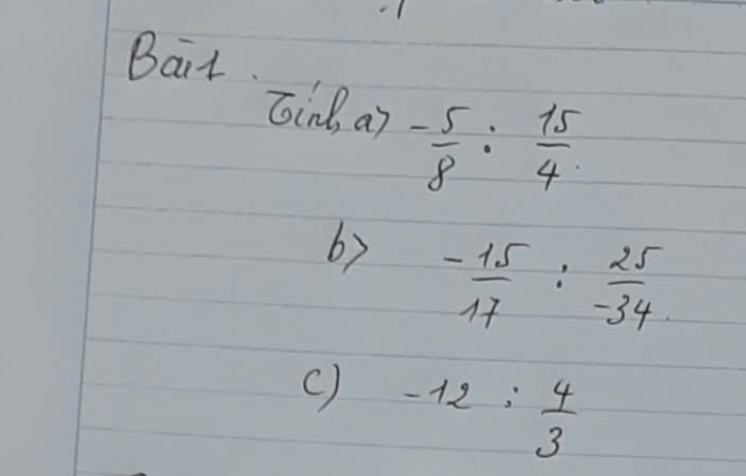 Bài 1.
Tính a) -5/8 : 15/4.
b) -15/17 : 25/-34.
c) -12 : 4/3